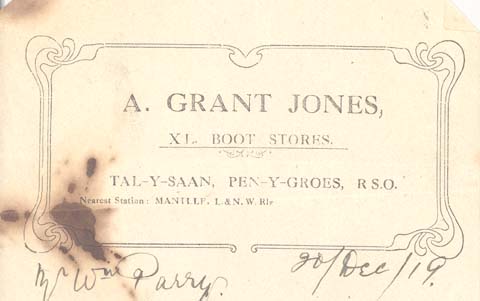 A. GRANT JONES,
XL. BOOT STORES.
TAL-Y-SAAN, PEN-Y-GROES, R S.O.
Nearest Station: MANTLLE, L. & N. W. Rly
Mr Wm Parry. 20/Dec/19.